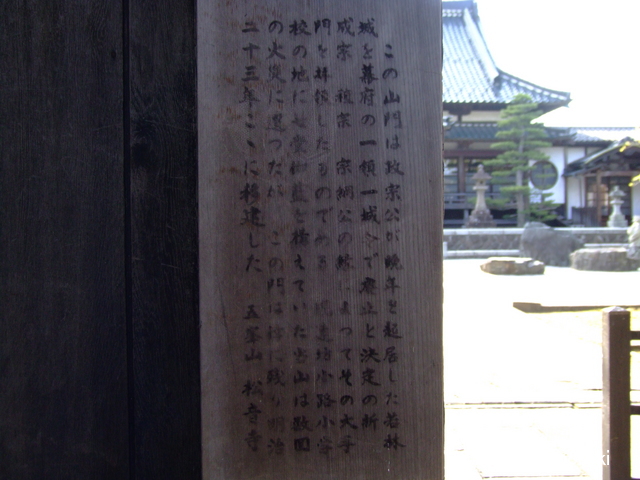 この山門は政宗公が晩年を起居した若林
城を幕府の一領一城令で廃止と決定の折
成宗 祖宗 宗綱公の
によつてその大手
門を拝領したものである 現連坊小路小学
校の地に七堂伽藍を構えていた当山は数回
の火災に遭つたが この門は
残り明治
二十三年こゝに移建した 五峯山 松音寺